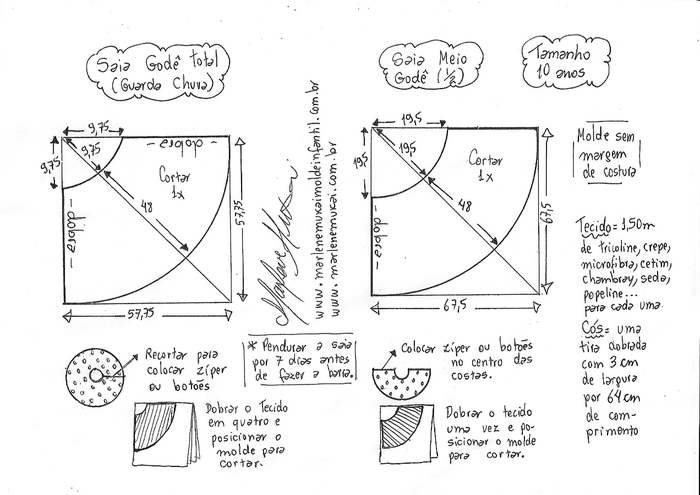 Saia Godê total
(Guarda Chuva)
9,75
9,75
9,75
- dobra -
Cortar
1x
48
- dobra -
57,75
57,75
Recortar para
colocar zíper
ou botões
Dobrar o Tecido
em quatro e
posicionar o
molde para
cortar.
* Pendurar a saia
por 7 dias antes
de fazer a barra.
www.marlenemukaimoldeinfantil.com.br
www.marlenemukai.com.br
Saia Meio
Godê (1/2)
19,5
19,5
19,5
Cortar
1x
48
- dobra -
67,5
67,5
Colocar zíper ou botões
no centro das
costas.
Dobrar o tecido
uma vez e po-
sicionar o molde
para cortar.
Tamanho
10 anos
Molde sem
margem
de costura
Tecido = 1,50m
de tricoline, crepe,
microfibra, cetim,
chambray, seda,
popeline...
para cada uma.
Cós = uma
tira dobrada
com 3 cm
de largura
por 64 cm
de com-
primento